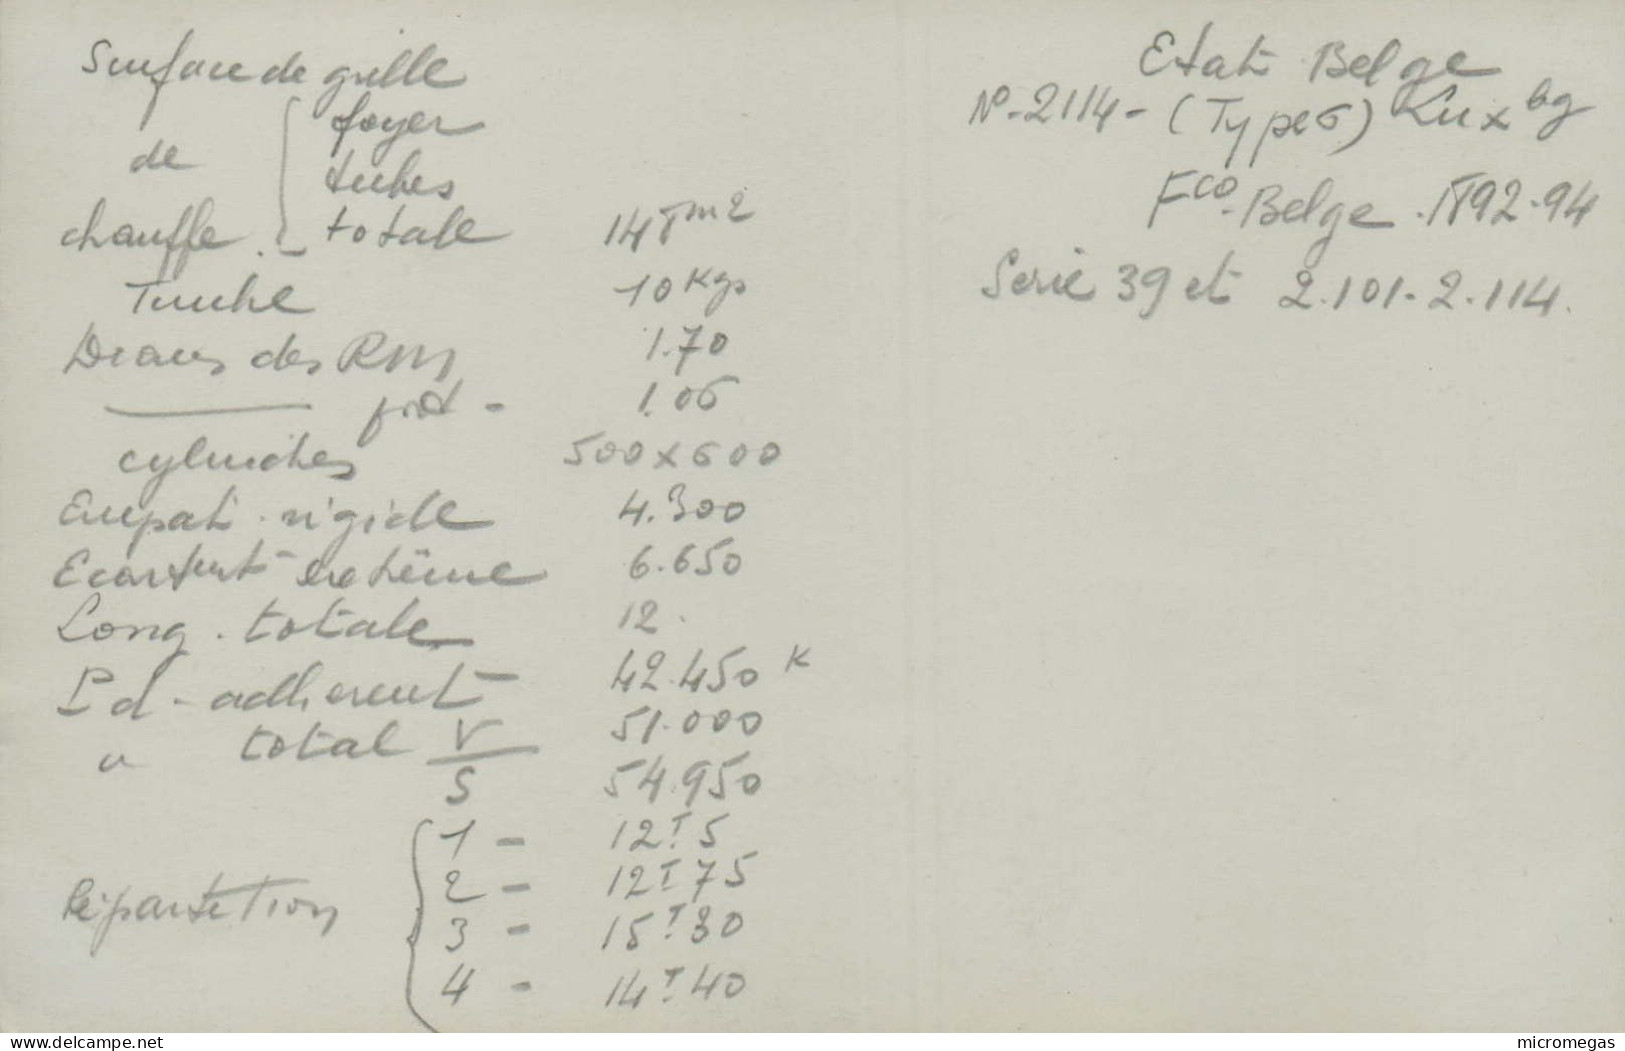 Surface de grille
de chauffe { foyer
tubes
totale 148 m2
Timbre 10 Kgs
Diam des RM 1.70
——— prt - 1.06
cylindres 500 x 600
Empatt. rigide 4.300
Ecartemt extrême 6.650
Long. totale 12.
Pd - adherent 42.450 K
" total V 51.000
S 54.950
Répartition { 1 - 12T.5
2 - 12T75
3 - 15T.30
4 - 14T.40
Etat Belge
No-2114- (Type 6) Luxbg
Fco-Belge. 1892-94
Serie 39 et 2.101-2.114.
www.delcampe.net
micromegas